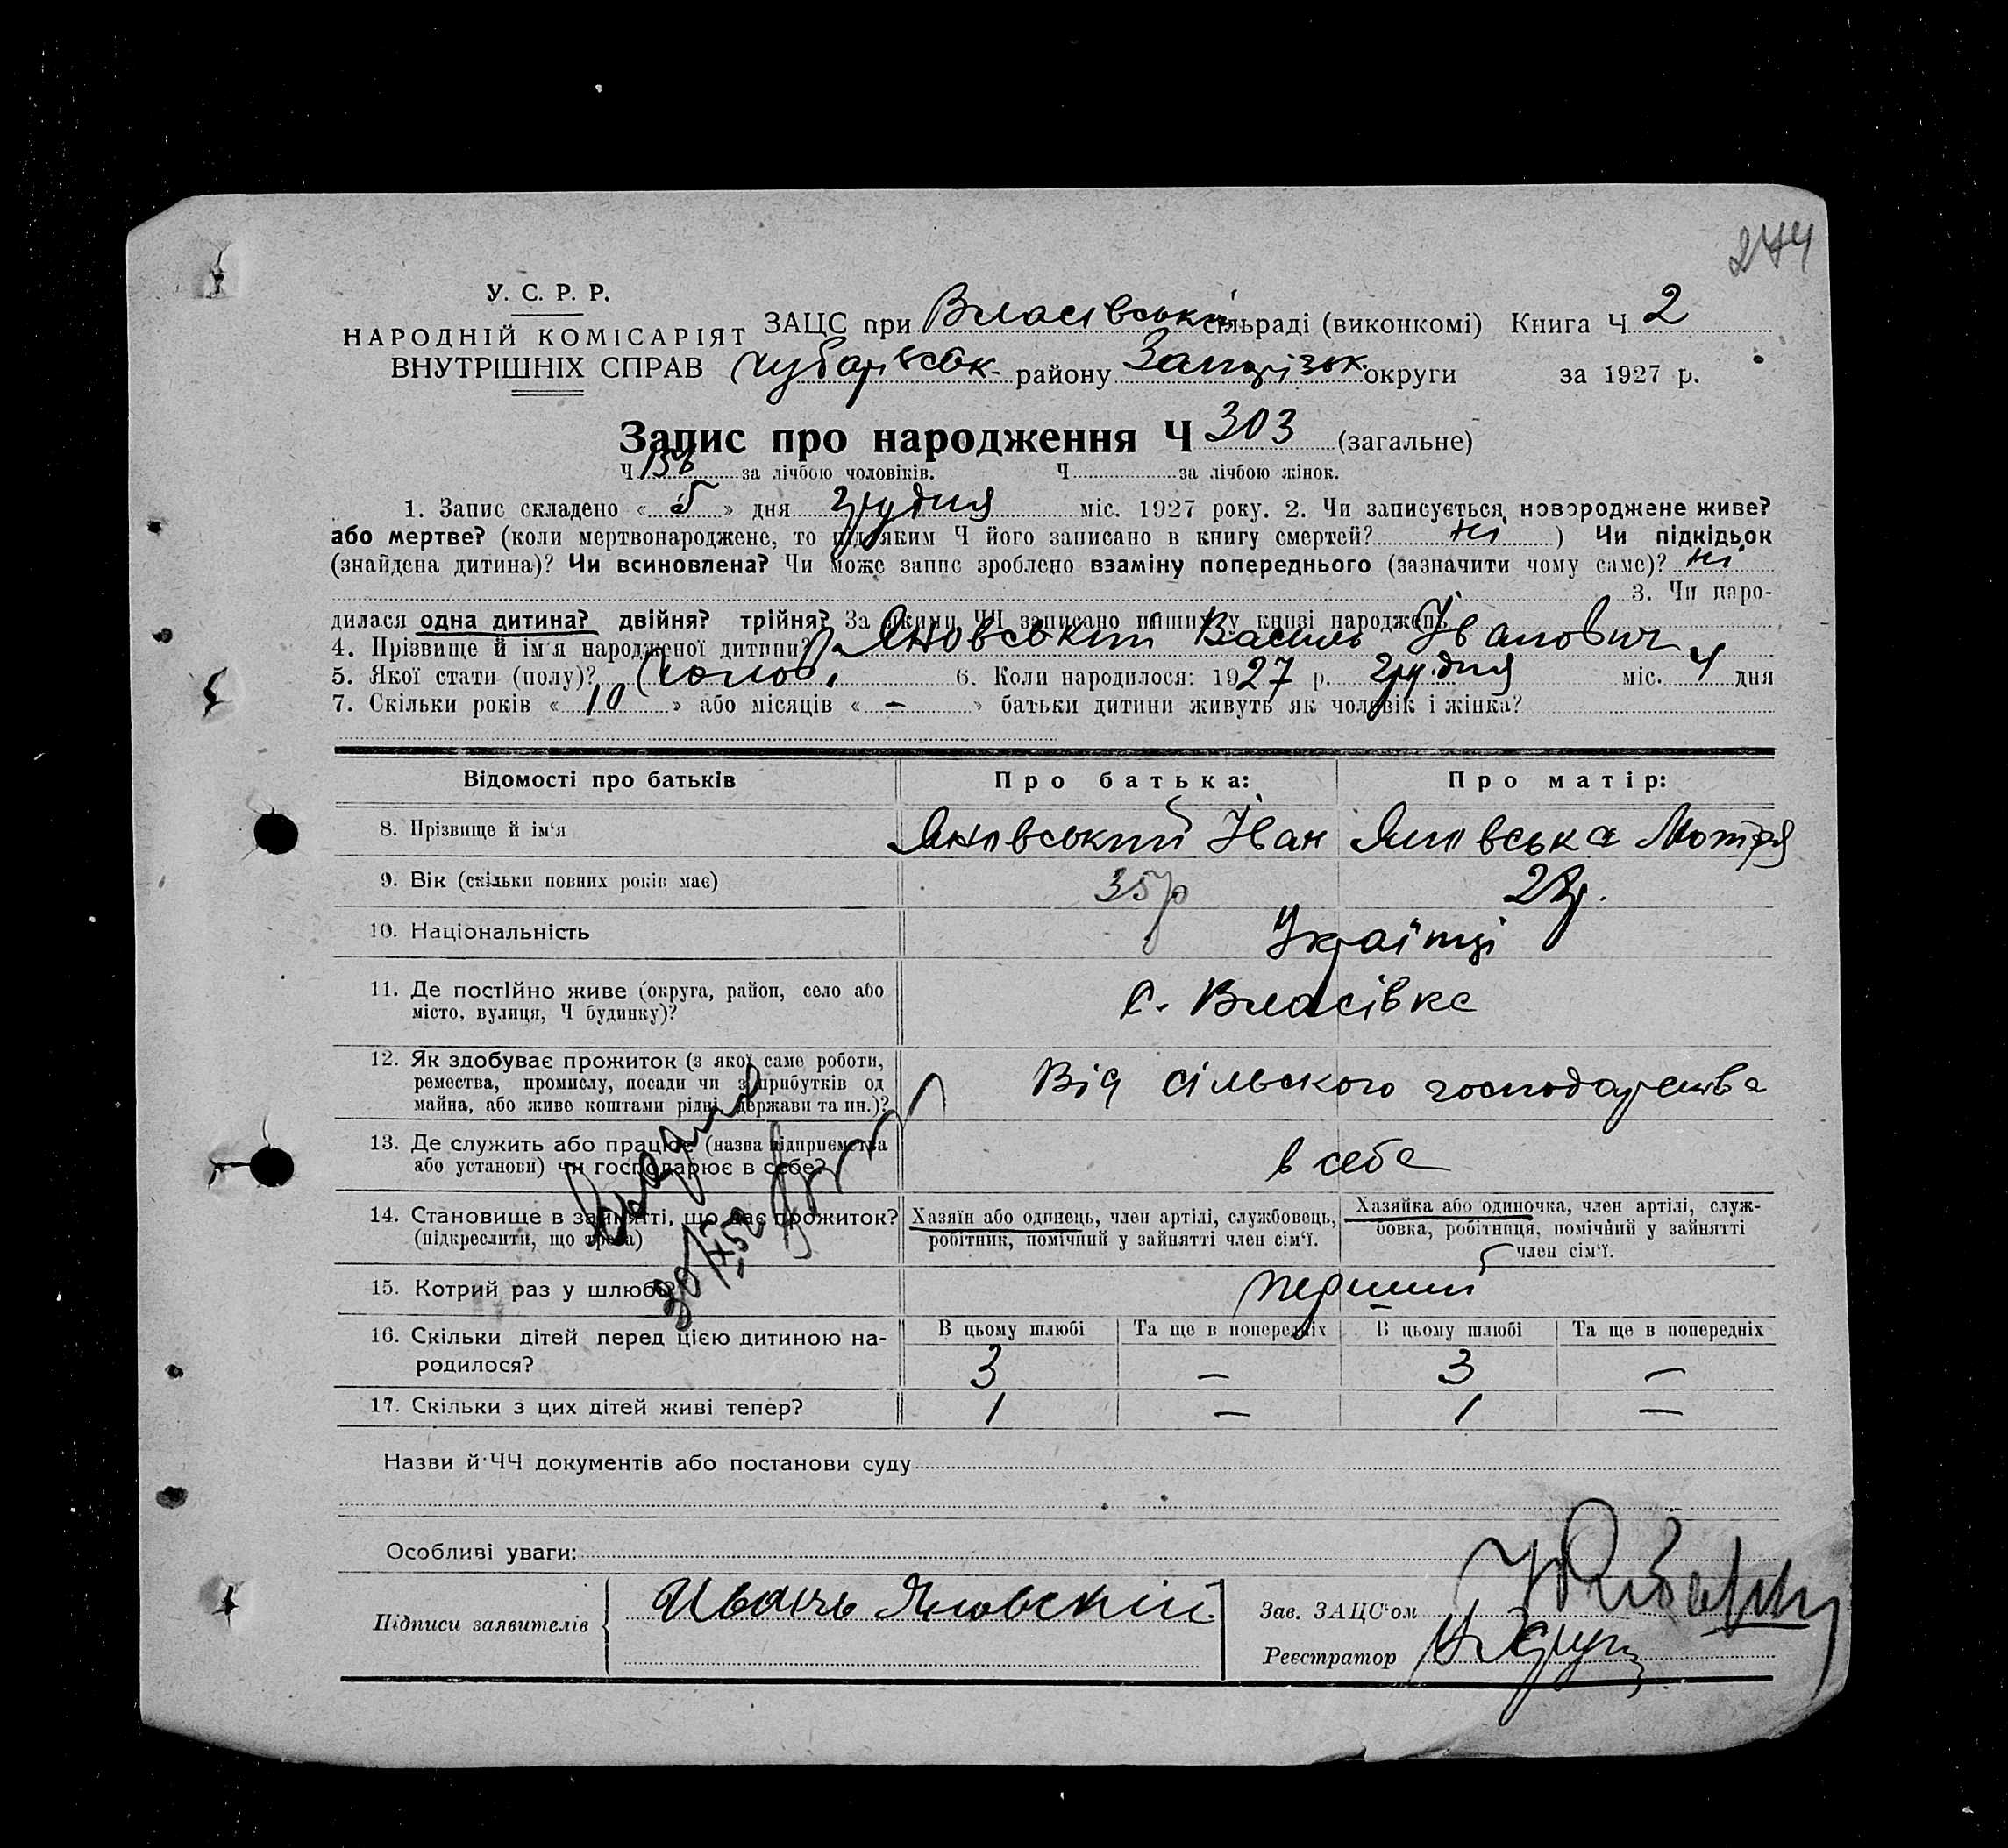 244
У. С. Р. Р.
НАРОДНІЙ КОМІСАРІЯТ
ВНУТРІШНІХ СПРАВ
ЗАЦС при Власівській сільраді (виконкомі) Книга Ч 2
Чубарівськ. району Запорізьк. округи за 1927 р.
Запис про народження Ч 303 (загальне)
Ч 156 за лічбою чоловіків. Ч за лічбою жінок.
1. Запис складено « 5 » дня грудня міс. 1927 року. 2. Чи записується новороджене живе?
або мертве? (коли мертвонароджене, то під яким Ч його записано в книгу смертей? ні ) Чи підкідьок
(знайдена дитина)? Чи всиновлена? Чи може запис зроблено взаміну попереднього (зазначити чому саме)? ні
3. Чи наро-
дилася одна дитина? двійня? трійня? За якими ЧЧ записано инших у книзі народжень
4. Прізвище й ім'я народженої дитини? Яновський Василь Іванович
5. Якої стати (полу)? Чолов. 6. Коли народилося: 1927 р. грудня міс. 4 дня
7. Скільки років « 10 » або місяців « — » батьки дитини живуть як чоловік і жінка?
Відомості про батьків Про батька: Про матір:
8. Прізвище й ім'я Яновський Іван Яновська Мотря
9. Вік (скільки повних років має) 35р
10. Національність Українці
11. Де постійно живе (округа, район, село або
місто, вулиця, Ч будинку)? с. Власівка
12. Як здобуває прожиток (з якої саме роботи,
ремества, промислу, посади чи з прибутків од
майна, або живе коштами рідні, держави та ин.)? Від сільского господарства
13. Де служить або працює (назва підприємства
або установи) чи господарює в себе? в себе
14. Становище в зайнятті, що дає прожиток?
(підкреслити, що треба)
Хазяїн або одинець, член артілі, службовець,
робітник, помічний у зайнятті член сім'ї.
Хазяйка або одиночка, член артілі, служ-
бовка, робітниця, помічний у зайнятті
член сім'ї.
15. Котрий раз у шлюбі? перший
16. Скільки дітей перед цією дитиною на-
родилося?
В цьому шлюбі Та ще в попередніх В цьому шлюбі Та ще в попередніх
3 — 3 —
17. Скільки з цих дітей живі тепер? 1 — 1 —
Назви й ЧЧ документів або постанови суду
Особливі уваги:
Підписи заявителів Иванъ Яновский
Зав. ЗАЦС'ом
Реєстратор